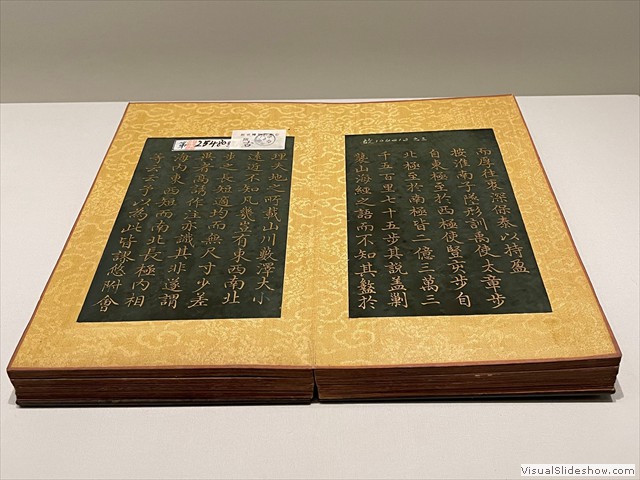 而厚往衷深保泰以持盈
按淮南子墬形訓禹使太章步
自東極至於西極使豎亥步自
北極至於南極皆一億三萬三
千五百里七十五步其說蓋剿
襲山海經之語而不知其盭於
理天地之所載山川藪澤大小
遠近不知凡幾豈有東西南北
步之長短適均而無尺寸少差
者高誘作注亦識其非遂謂
海內東西短而南北長極內相
等云云予以為此皆謬悠附會
VisualSlideshow.com